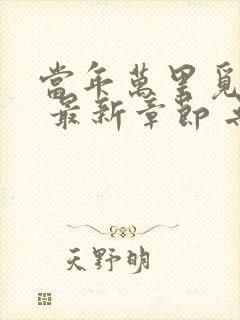 當年萬里覓
最新章節
天野明